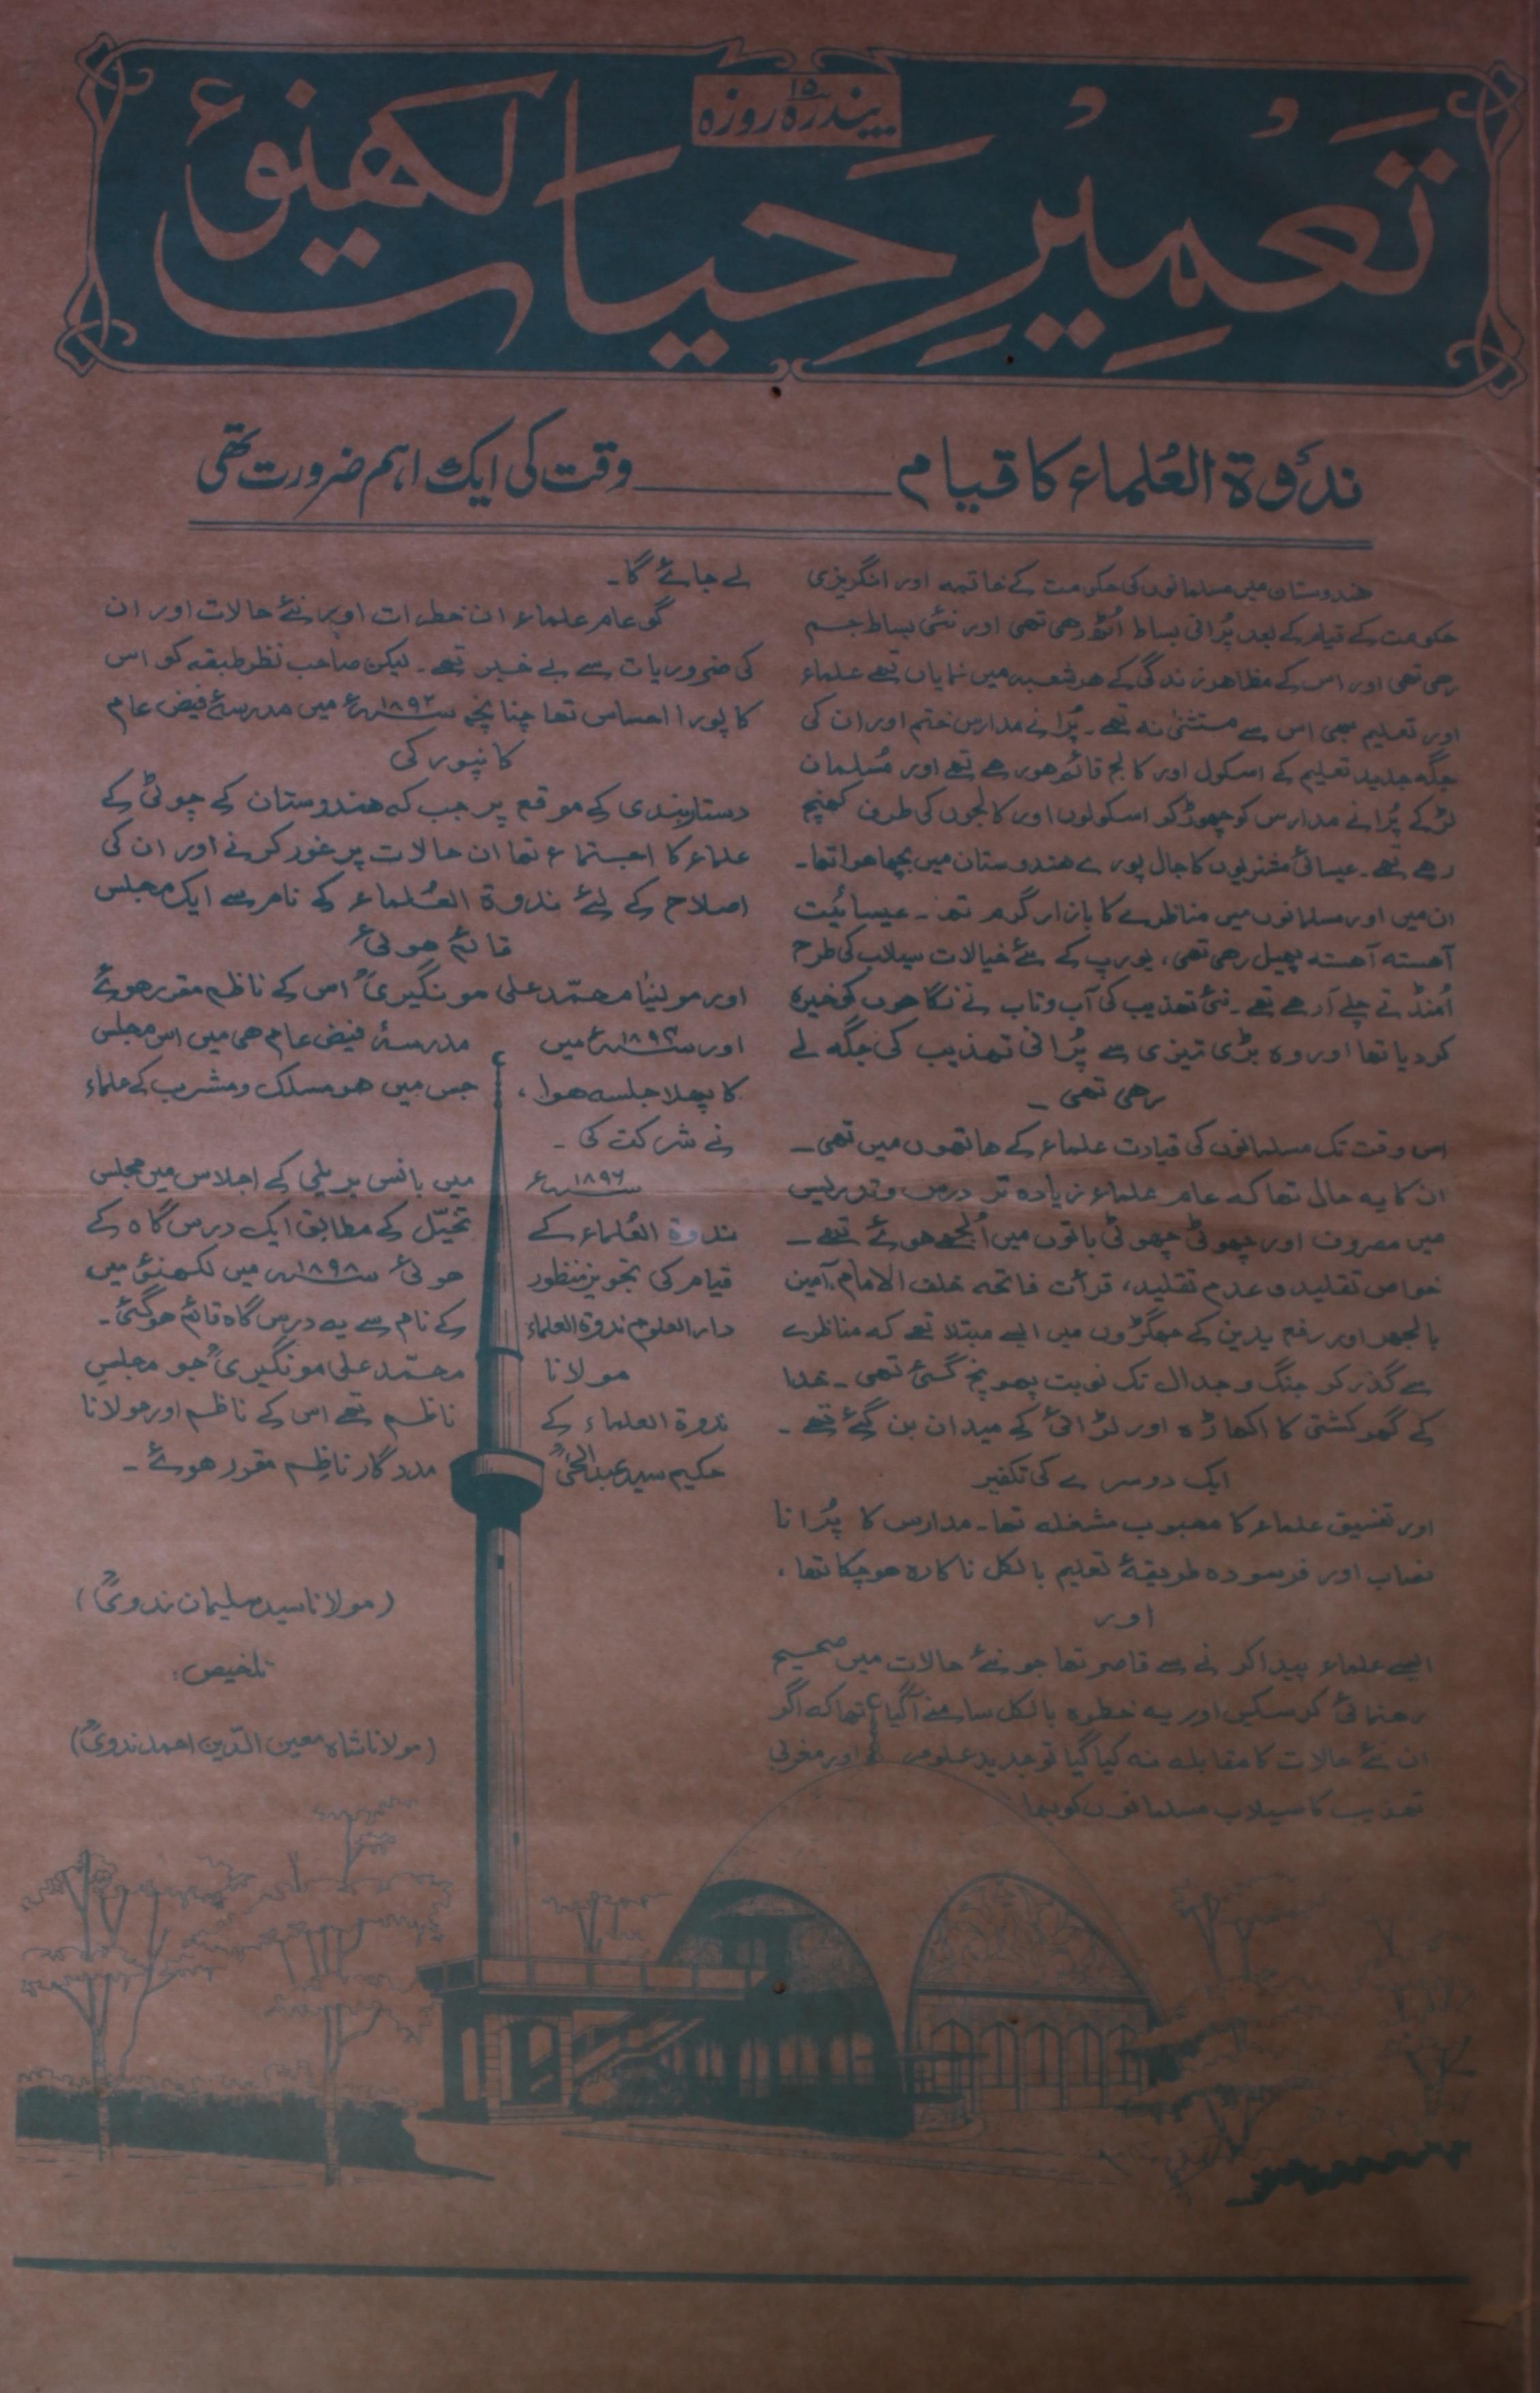 پندرہ ۱۵ روزہ
تَعمِیرِ حَیات لکھنؤ
ندوۃ العُلماء کا قیام ــــــــ وقت کی ایک اہم ضرورت تھی
ہندوستان میں مسلمانوں کی حکومت کے خاتمہ اور انگریزی
حکومت کے قیام کے بعد پُرانی بساط اُٹھ رہی تھی اور نئی بساط جم
رہی تھی اور اس کے مظاہر زندگی کے ہر شعبہ میں نمایاں تھے علماء
اور تعلیم بھی اس سے مستثنیٰ نہ تھے۔ پُرانے مدارس ختم اور ان کی
جگہ جدید تعلیم کے اسکول اور کالج قائم ہو رہے تھے اور مُسلمان
لڑکے پُرانے مدارس کو چھوڑ کر اسکولوں اور کالجوں کی طرف کھنچ
رہے تھے۔ عیسائی مشنریوں کا جال پورے ہندوستان میں بچھا ہوا تھا۔
ان میں اور مسلمانوں میں مناظرے کا بازار گرم تھا۔ عیسائیت
آہستہ آہستہ پھیل رہی تھی، یورپ کے نئے خیالات سیلاب کی طرح
اُمنڈتے چلے آرہے تھے۔ نئی تہذیب کی آب و تاب نے نگاہوں کو خیرہ
کردیا تھا اور وہ بڑی تیزی سے پُرانی تہذیب کی جگہ لے
رہی تھی۔
اس وقت تک مسلمانوں کی قیادت علماء کے ہاتھوں میں تھی۔
ان کا یہ حال تھا کہ عام علماء زیادہ تر درس و تدریس
میں مصروف اور چھوٹی چھوٹی باتوں میں اُلجھے ہوئے تھے۔
خواص تقلید و عدم تقلید، قرأت فاتحہ خلف الامام، آمین
بالجہر اور رفع یدین کے جھگڑوں میں ایسے مبتلا تھے کہ مناظرے
سے گذر کر جنگ و جدال تک نوبت پہونچ گئی تھی۔ خدا
کے گھر کشتی کا اکھاڑہ اور لڑائی کے میدان بن گئے تھے۔
ایک دوسرے کی تکفیر
اور تفسیق علماء کا محبوب مشغلہ تھا۔ مدارس کا پُرانا
نصاب اور فرسودہ طریقۂ تعلیم بالکل ناکارہ ہوچکا تھا،
اور
ایسے علماء پیدا کرنے سے قاصر تھا جو نئے حالات میں صحیح
رہنمائی کرسکیں اور یہ خطرہ بالکل سامنے آگیا تھا کہ اگر
ان نئے حالات کا مقابلہ نہ کیا گیا تو جدید علوم اور مغربی
تہذیب کا سیلاب مسلمانوں کو بہا
لے جائے گا۔
گو عام علماء ان خطرات اور نئے حالات اور ان
کی ضروریات سے بے خبر تھے۔ لیکن صاحب نظر طبقہ کو اس
کا پورا احساس تھا چنانچہ ۱۸۹۲ء میں مدرسۂ فیض عام
کانپور کی
دستاربندی کے موقع پر جب کہ ہندوستان کے چوٹی کے
علماء کا اجتماع تھا ان حالات پر غور کرنے اور ان کی
اصلاح کے لئے ندوۃ العُلماء کے نام سے ایک مجلس
قائم ہوئی
اور مولٰینا محمّد علی مونگیریؒ اس کے ناظم مقرر ہوئے
اور ۱۸۹۳ء میں مدرسۂ فیض عام ھی میں اس مجلس
کا پہلا جلسہ ہوا، جس میں ہر مسلک و مشرب کے علماء
نے شرکت کی۔
۱۸۹۶ء میں بانس بریلی کے اجلاس میں مجلس
ندوۃ العُلماء کے تخیّل کے مطابق ایک درس گاہ کے
قیام کی تجویز منظور ہوئی ۱۸۹۸ء میں لکھنؤ میں
دارالعلوم ندوۃ العلماء کے نام سے یہ درس گاہ قائم ہوگئی۔
مولانا محمّد علی مونگیریؒ جو مجلسِ
ندوۃ العلماء کے ناظم تھے اس کے ناظم اور مولانا
حکیم سید عبدالحئیؒ مددگار ناظِم مقرر ہوئے۔
(مولانا سید سلیمان ندویؒ)
تلخیص:
(مولانا شاہ معین الدّین احمد ندویؒ)